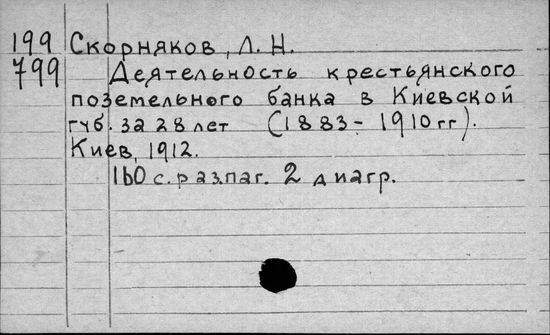 199 Скорняков, Л. Н.
799 Деятельность крестьянского
поземельного банка в Киевской
губ. за 28 лет (1883-1910 гг).
Киев, 1912.
160 с. разпаг. 2 диагр.